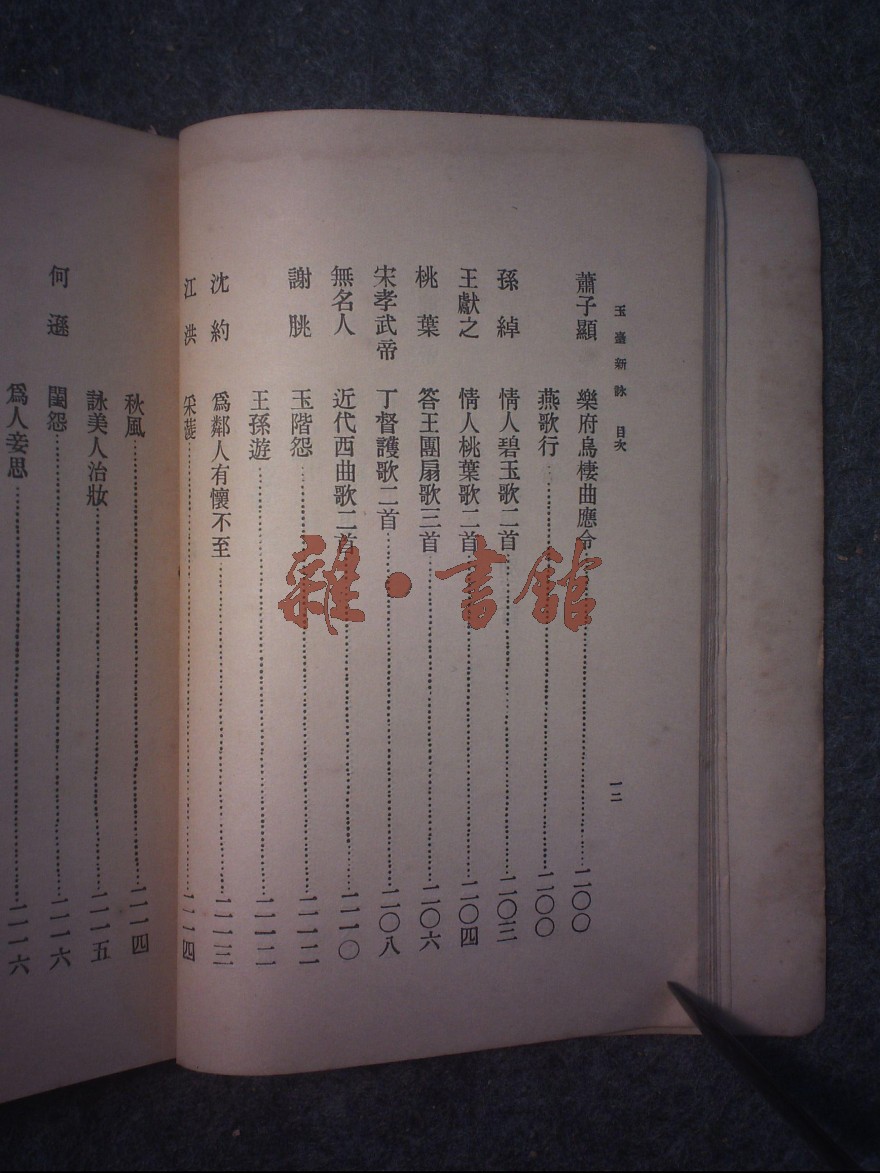 玉臺新詠 目次 一二
蕭子顯 樂府烏棲曲應令 二〇〇
燕歌行 二〇〇
孫綽 情人碧玉歌二首 二〇三
王獻之 情人桃葉歌二首 二〇四
桃葉 答王團扇歌三首 二〇六
宋孝武帝 丁督護歌二首 二〇八
無名人 近代西曲歌二首 二一〇
謝朓 玉階怨 二一二
王孫遊
沈約 爲鄰人有懷不至 二一三
江洪 采菱 二一四
秋風 二一四
詠美人治妝 二一五
何遜 閨怨 二一六
爲人妾思 二一六
雜·書館